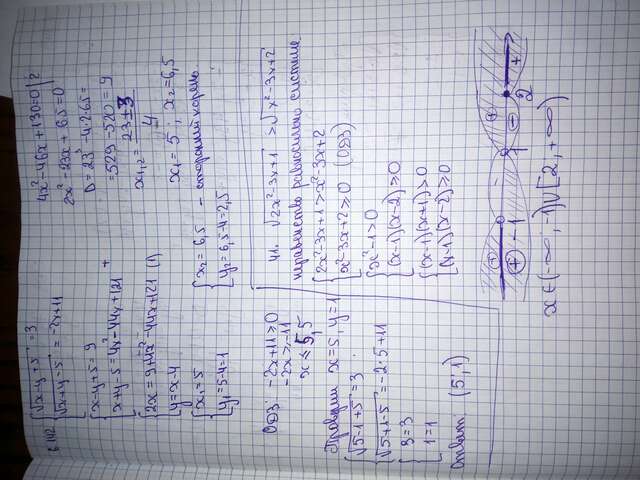 6.142 { √x-y+5 = 3
√x+y-5 = -2x+11
{ x-y+5=9
x+y-5=4x²-44x+121 +
{ 2x=9+4x²-44x+121 (1)
y=x-4
{ x₁=5
y₁=5-4=1
{ x₂=6,5 - сторонний корень
y₂=6,5-4=2,5
4x²-46x+130=0 |:2
2x²-23x+65=0
D=23²-4·2·65=
=529-520=9
x₁,₂=(23±3)/4
x₁=5; x₂=6,5
ОДЗ: -2x+11≥0
-2x≥-11
x≤5,5
Проверим x=5, y=1
{ √5-1+5=3
√5+1-5=-2·5+11
{ 3=3
1=1
Ответ: (5;1)
41. √2x²-3x+1 > √x²-3x+2
неравенство равносильно системе
{ 2x²-3x+1>x²-3x+2
x²-3x+2≥0 (ОДЗ)
{ x²-1>0
(x-1)(x-2)≥0
{ (x-1)(x+1)>0
(x-1)(x-2)≥0
+ - +
+ -1 1 - 2 +
x∈(-∞;-1)∪[2,+∞)